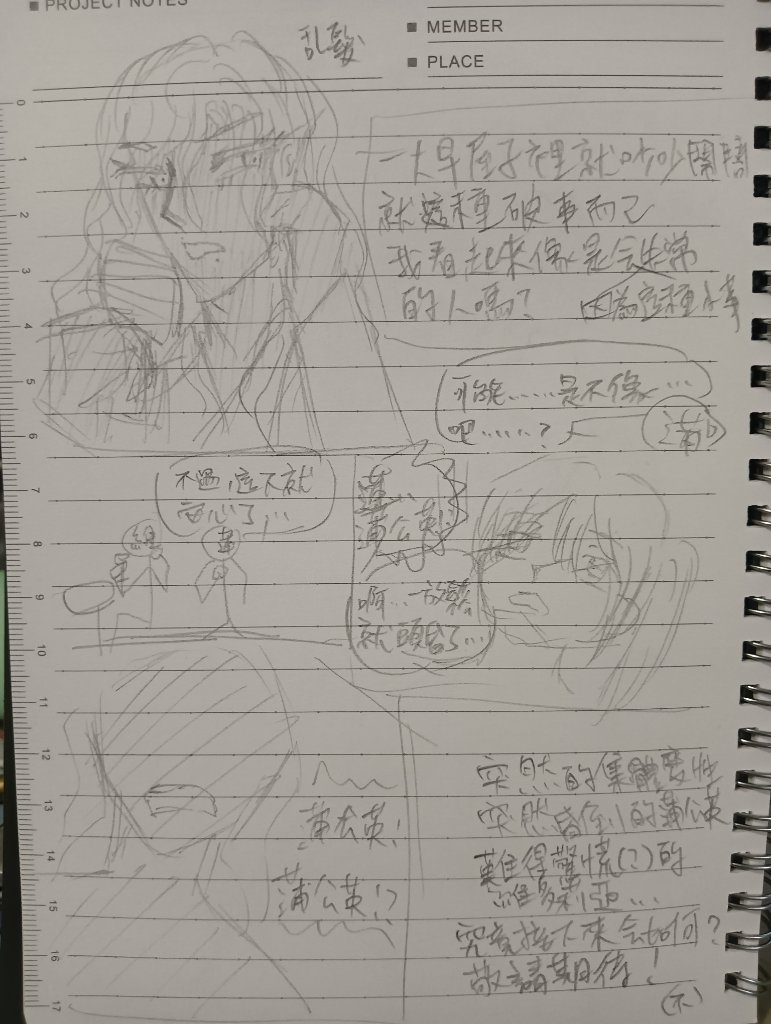 PROJECT NOTES
MEMBER
PLACE
乱髮
一大早屋子裡就吵吵鬧鬧
就這種破事而已
我看起來像是会生氣
的人嗎？ 因為這種小事
可能……是不像…
吧……？
蒲
不過，這下就
安心了…
蒲…
蒲公英！
啊…一放鬆
就頭暈了…
蒲公英！
蒲公英！？
突然的集體變性
突然昏倒的蒲公英
難得驚慌(？)的
維多利亞…
究竟接下來会如何？
敬請期待！
(不)
0
1
2
3
4
5
6
7
8
9
10
11
12
13
14
15
16
17